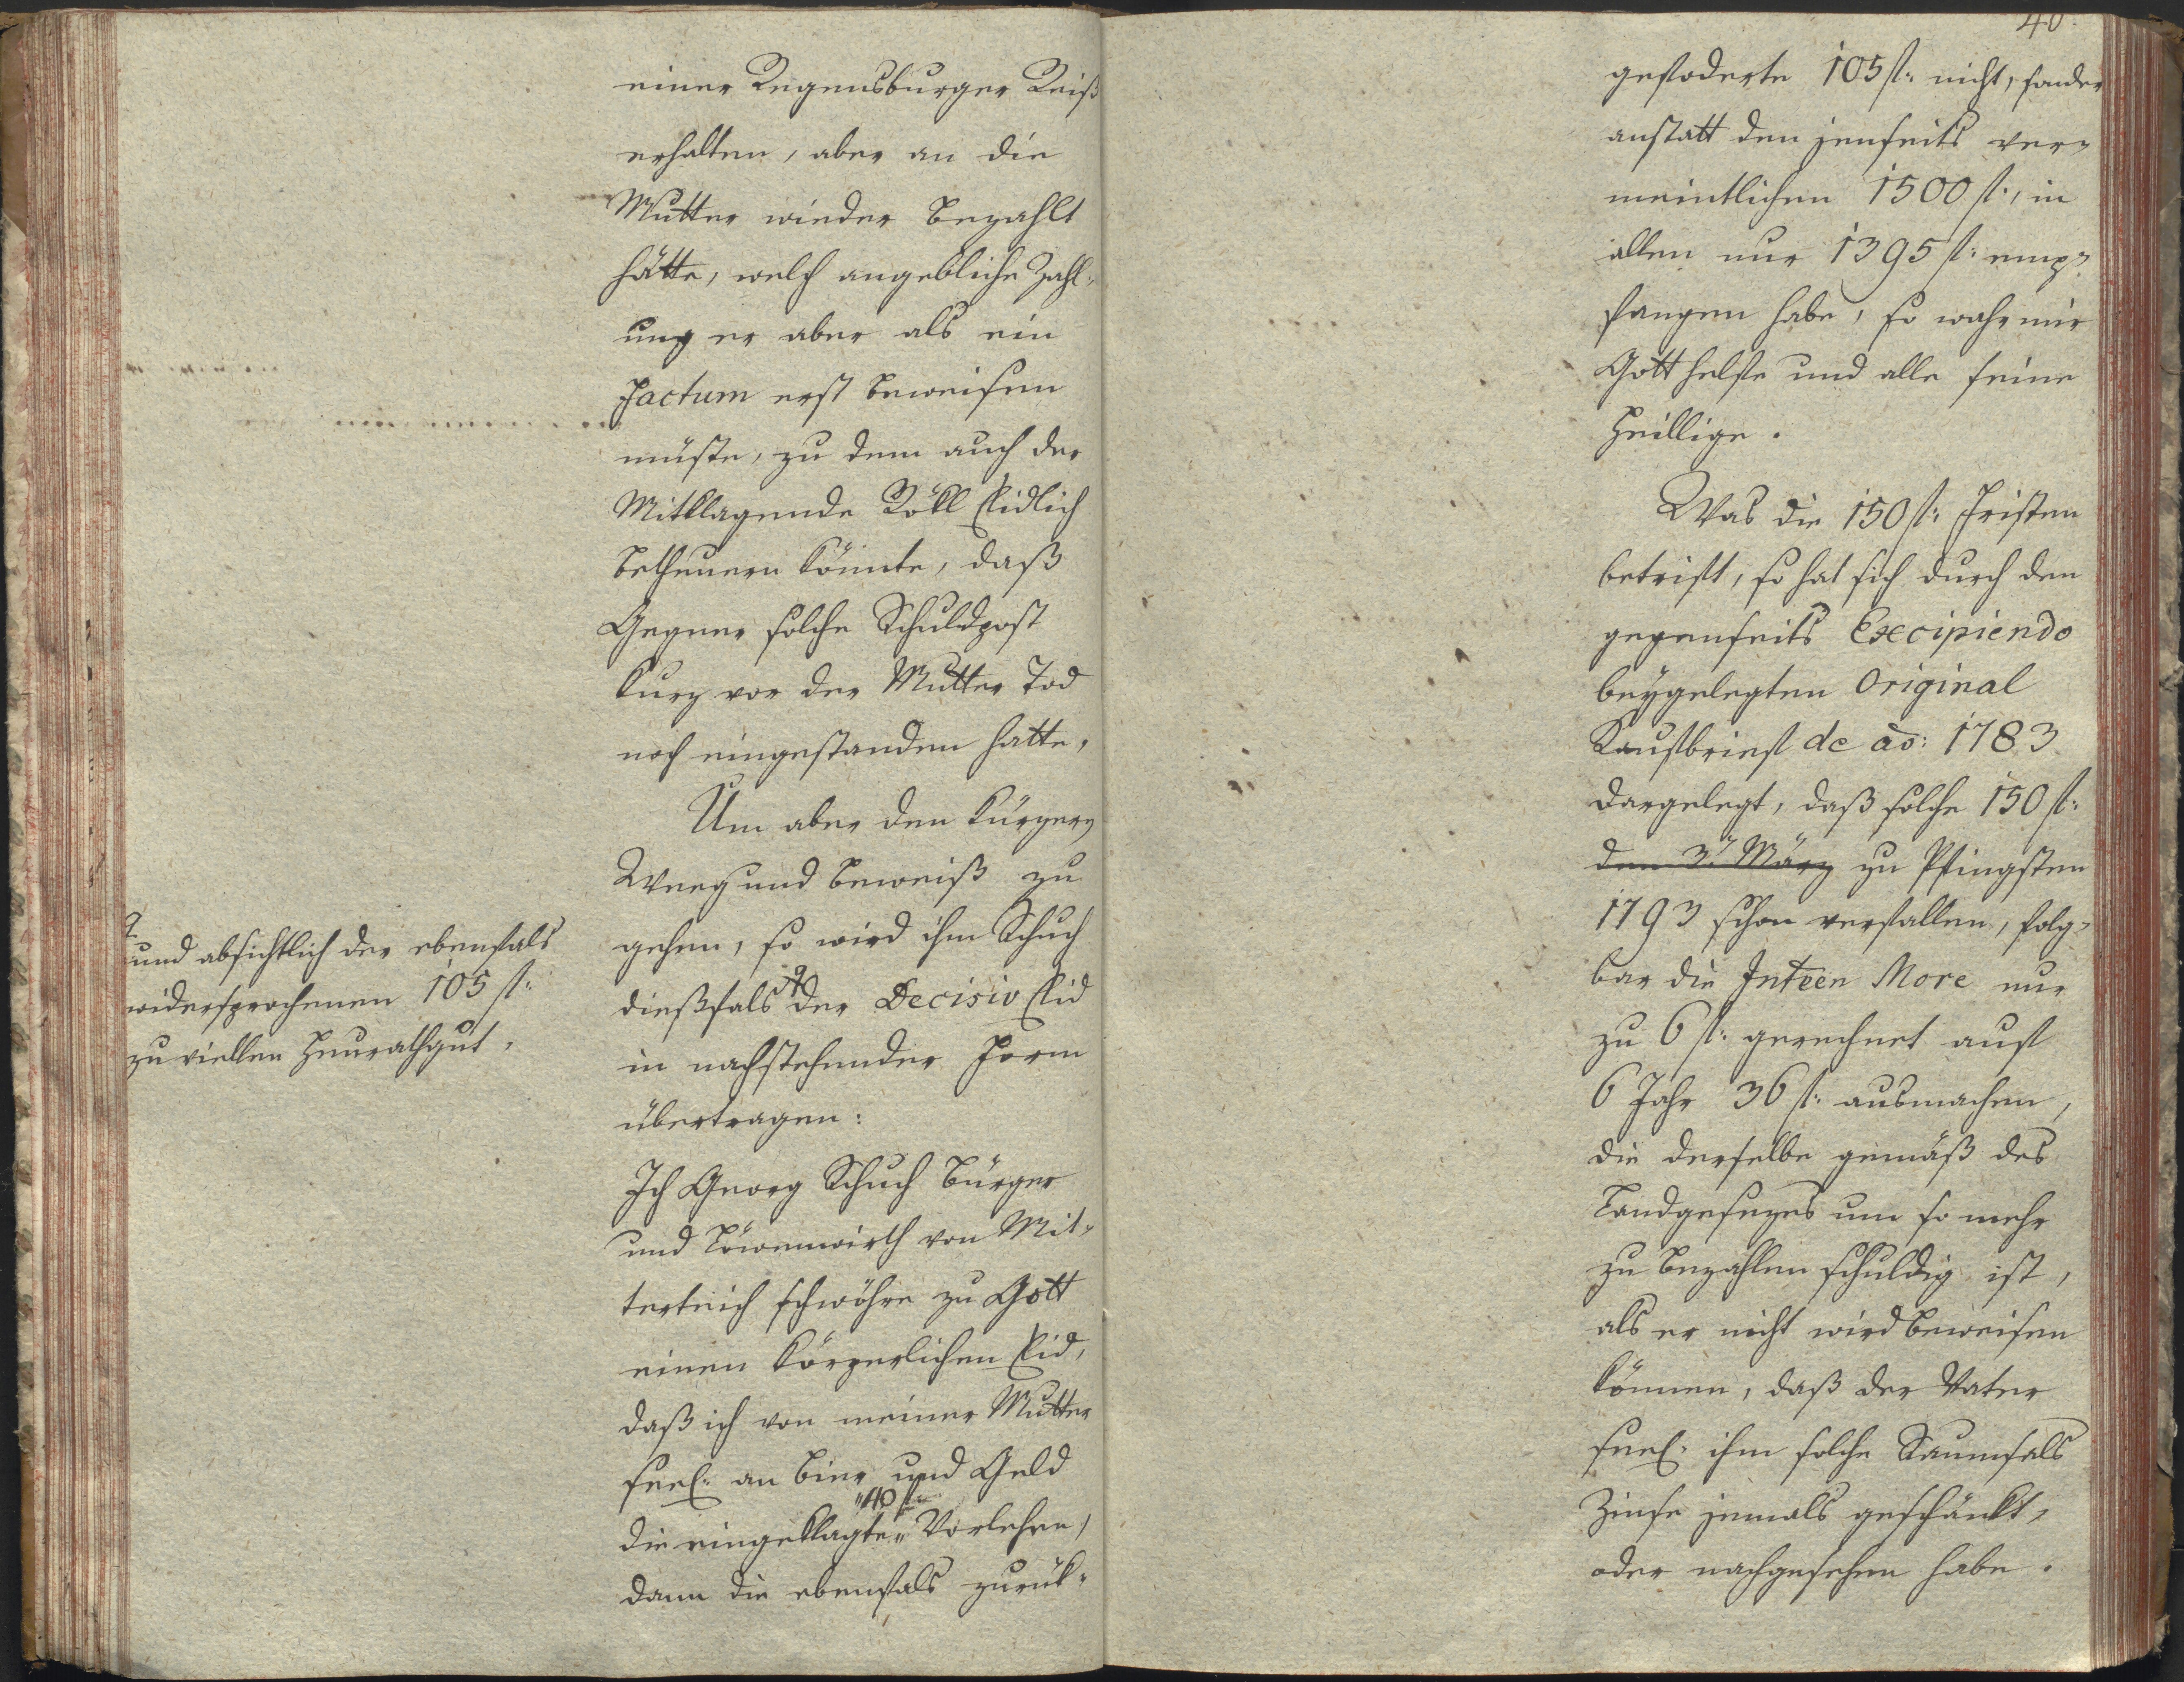 einer Regensburger Reiß
erhalten, aber an die
Mutter wieder bezahlt
hätte, welch angebliche Zahl-
ung er aber als ein
Factum erst beweisen
müste, zu dem auch der
Mitklagende Röckl Eidlich
betheuern könnte, daß
Gegner solche Schuldpost
kurz vor der Mutter Tod
noch eingestanden hatte,
Um aber den kürzern
Weeg und beweiß zu
gehen, so wird ihm Schuch
dießfals der Decisiv Eid
in nachstehender Form
übertragen:
Ich Georg Schuch Bürger
und Löwenwirth von Mit-
terteich schwöhre zu Gott
einen körperlichen Eid,
daß ich von meiner Mutter
seel: an bier und Geld
"40 fl:
die eingeklagte " Vorlehen,
dann die ebenfals zurük-
und absichtlich der ebenfals
widersprochenen 105 fl:
zu viellen Heurathgut,
40.
gefoderte 105 fl: nicht, sonder
anstatt den jenseits ver-
meintlichen 1500 fl:, in
allen nur 1395 fl: emp-
fangen habe, so wahr mir
Gott helfe und alle seine
Heillige.
Was die 150 fl: Fristen
betrift, so hat sich durch den
gegenseits Excipiendo
beygelegten Original
Kaufbrief de ao: 1783
dargelegt, daß solche 150 fl:
den 3. März zu Pfingsten
1793 schon verfallen, folg-
bar die Inteen More nur
zu 6 fl: gerechnet auf
6 Jahr 36 fl: ausmachen,
die derselbe gemäß des
Landgesezes um so mehr
zu bezahlen schuldig ist,
als er nicht wird beweisen
können, daß der Vater
seel: ihm solche Saumsals
Zinse jemals geschänkt,
oder nachgesehen habe.